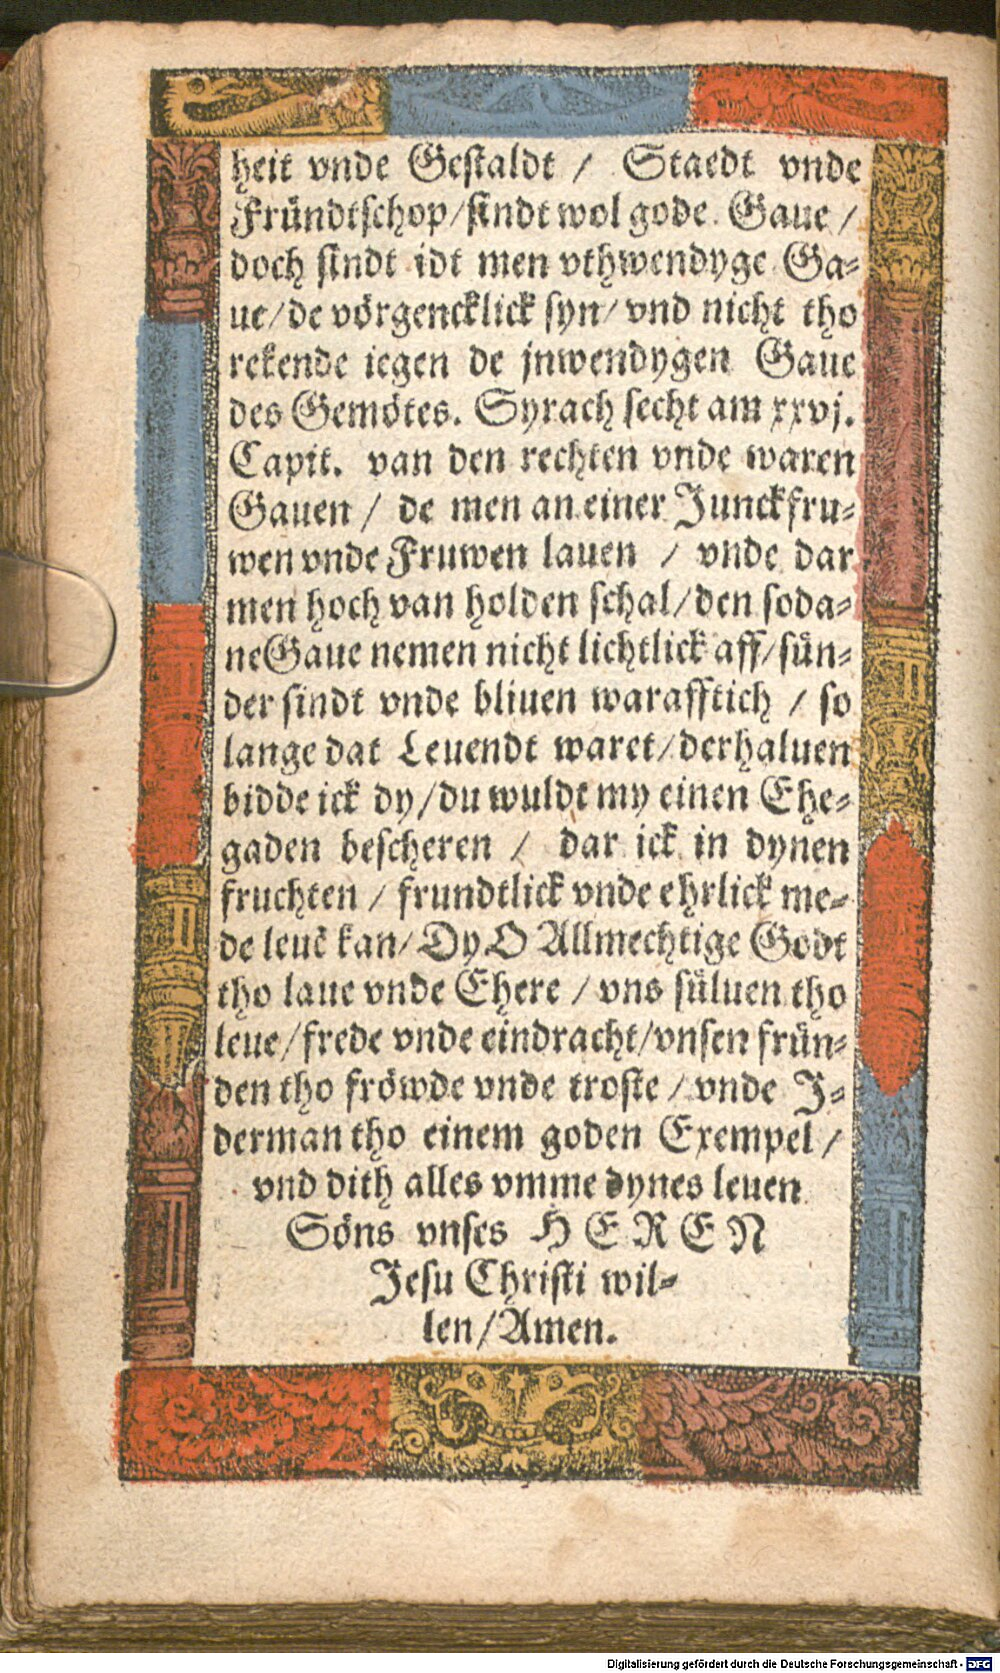 heit vnde Gestaldt / Staedt vnde
Fründtschop/sindt wol gode Gaue /
doch sindt idt men vthwendyge Ga-
ue/de vörgencklick syn/vnd nicht tho
rekende iegen de jnwendygen Gaue
des Gemötes. Syrach secht am xxvj.
Capit. van den rechten vnde waren
Gauen / de men an einer Junckfru-
wen vnde Fruwen lauen / vnde dar
men hoch van holden schal/den soda-
neGaue nemen nicht lichtlick aff/sün-
der sindt vnde bliuen warafftich / so
lange dat Leuendt waret/derhaluen
bidde ick dy/du wuldt my einen Ehe-
gaden bescheren / dar ick in dynen
fruchten / frundtlick vnde ehrlick me-
de leuē kan/Dy O Allmechtige Godt
tho laue vnde Ehere / vns süluen tho
leue/frede vnde eindracht/vnsen frün-
den tho fröwde vnde troste / vnde J-
derman tho einem goden Exempel /
vnd dith alles vmme dynes leuen
Söns vnses HEREN
Jesu Christi wil-
len/Amen.
Digitalisierung gefördert durch die Deutsche Forschungsgemeinschaft - DFG